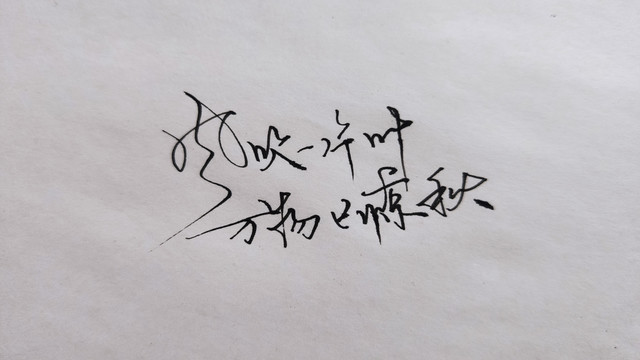 风吹一片叶
万物已惊秋